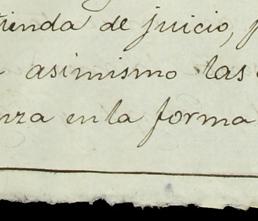 tienda de juicio, p
asimismo las
nza en la forma